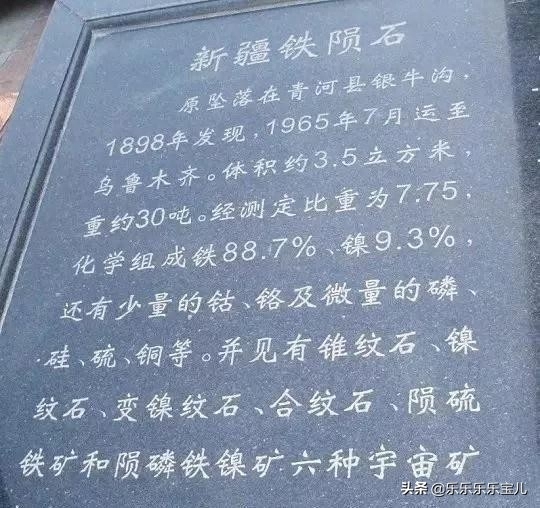 新疆铁陨石
原坠落在青河县银牛沟,
1898年发现,1965年7月运至
乌鲁木齐。体积约3.5立方米,
重约30吨。经测定比重为7.75,
化学组成铁88.7%、镍9.3%,
还有少量的钴、铬及微量的磷、
硅、硫、铜等。并见有锥纹石、镍
纹石、变镍纹石、合纹石、陨硫
铁矿和陨磷铁镍矿六种宇宙矿
头条 @乐乐乐乐宝儿